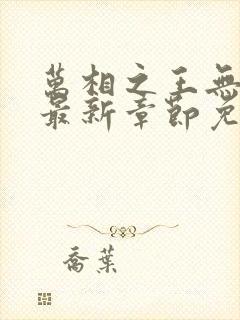 萬相之王無
最新章節免
喬葉